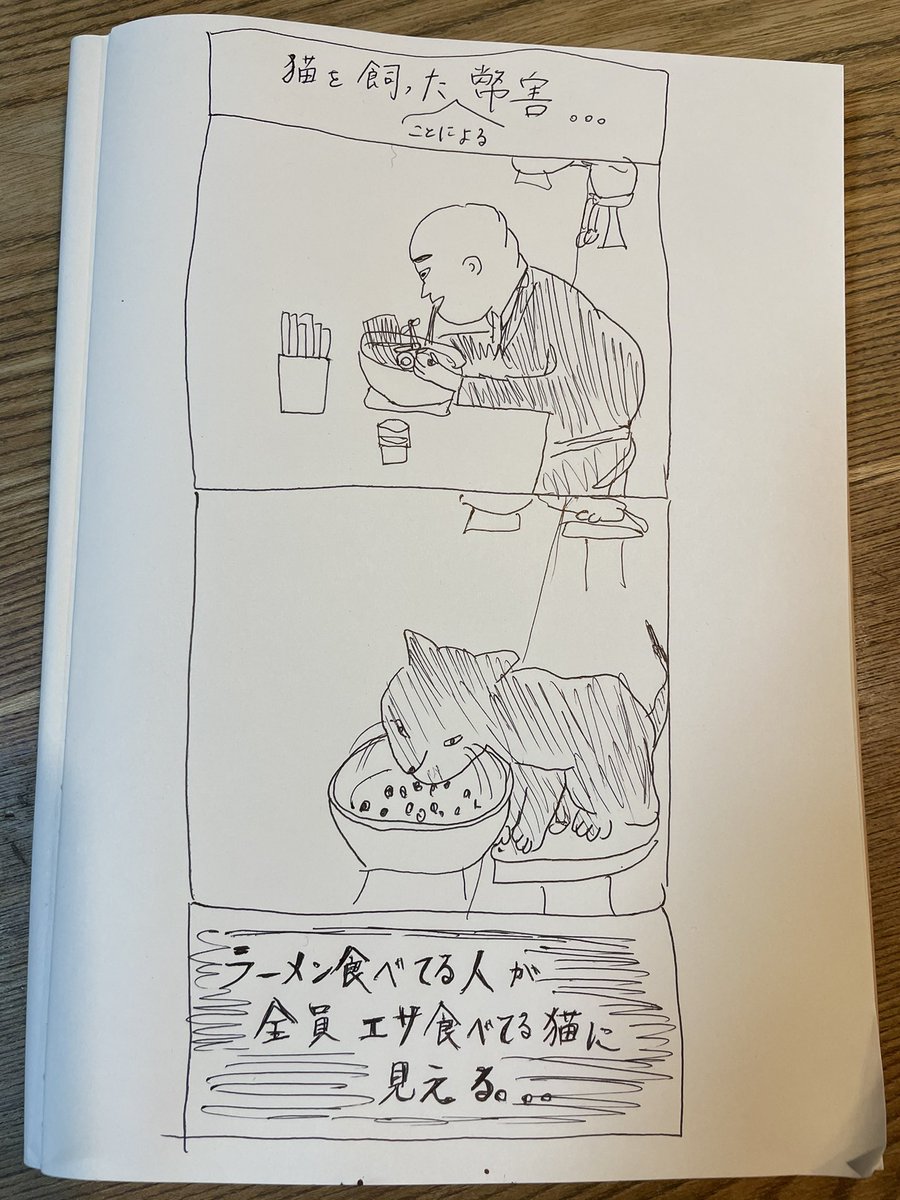 猫を飼った弊害...
ことによる
ラーメン食べてる人が
全員エサ食べてる猫に
見える。..